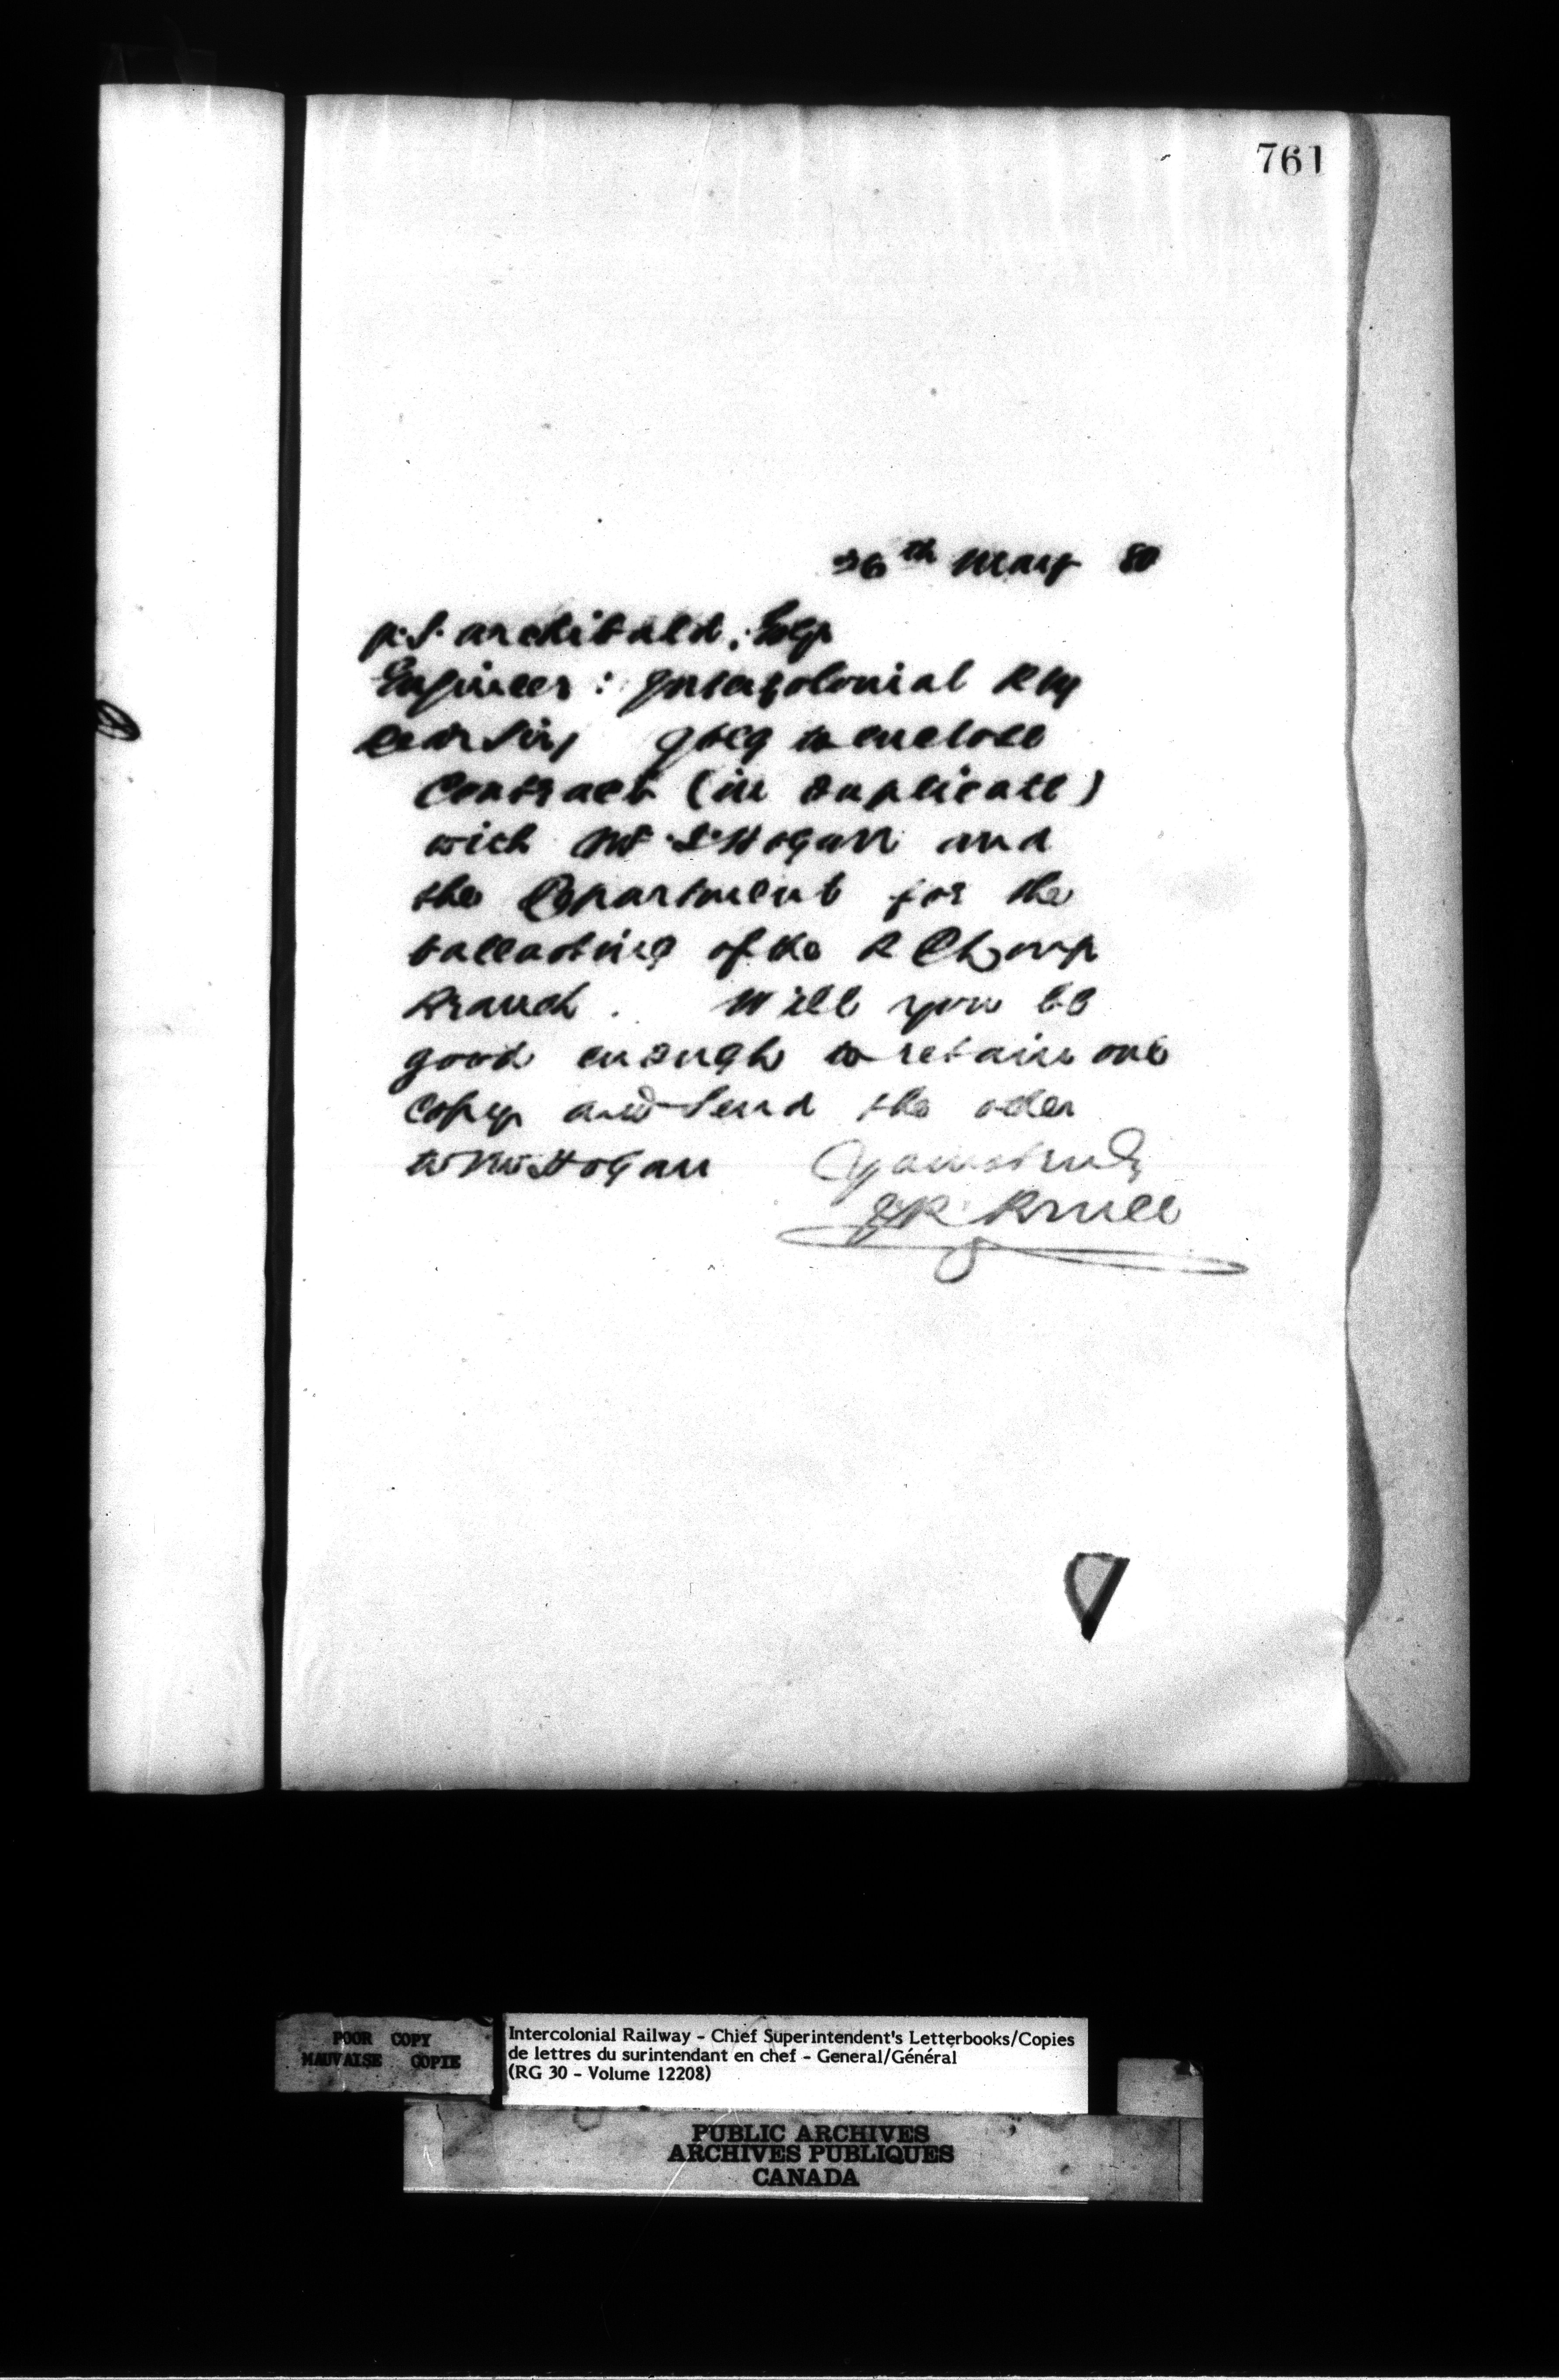 761
26th May 80
P. S. Archibald, Esq
Engineer: Intercolonial Rly
Dear Sir, I beg to enclose
Contract (in duplicate)
with Mr S Hogan and
the Department for the
ballasting of the R
Branch. Will you be
good enough to retain one
copy and send the other
to Mr Hogan Yours truly
POOR COPY
MAUVAISE COPIE
Intercolonial Railway - Chief Superintendent's Letterbooks/Copies
de lettres du surintendant en chef - General/Général
(RG 30 - Volume 12208)
PUBLIC ARCHIVES
ARCHIVES PUBLIQUES
CANADA